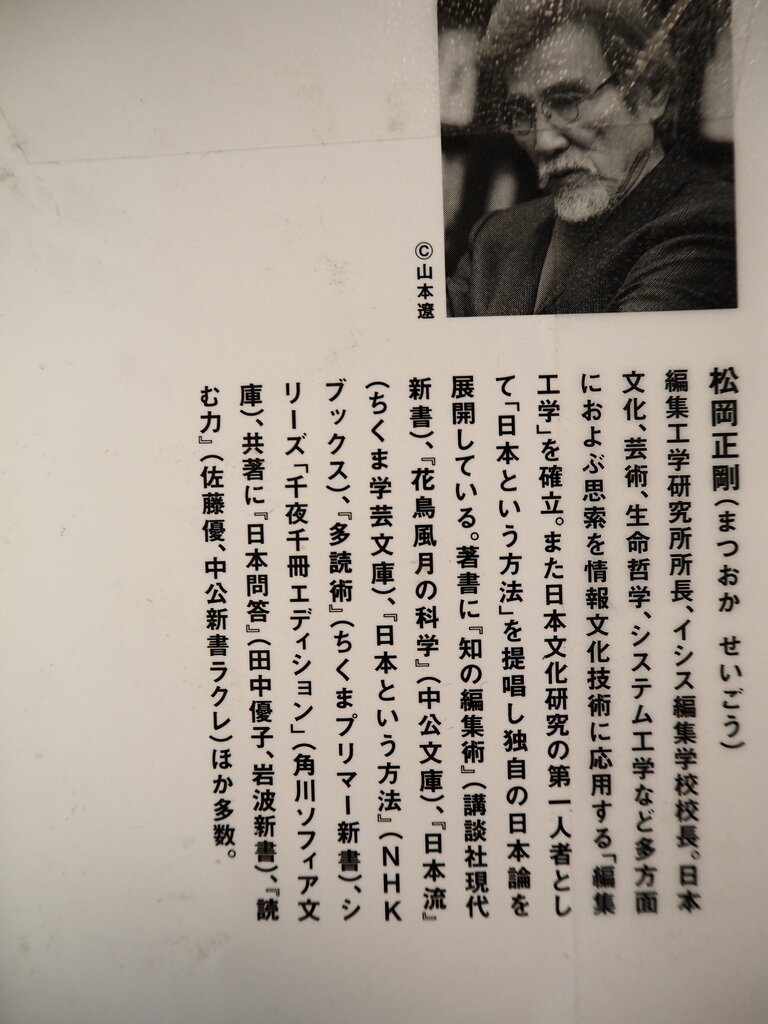 ©山本遼
松岡正剛(まつおか せいごう)
編集工学研究所所長、イシス編集学校校長。日本
文化、芸術、生命哲学、システム工学など多方面
におよぶ思索を情報文化技術に応用する「編集
工学」を確立。また日本文化研究の第一人者とし
て「日本という方法」を提唱し独自の日本論を
展開している。著書に『知の編集術』(講談社現代
新書)、『花鳥風月の科学』(中公文庫)、『日本流』
(ちくま学芸文庫)、『日本という方法』(NHK
ブックス)、『多読術』(ちくまプリマー新書)、シ
リーズ「千夜千冊エディション」(角川ソフィア文
庫)、共著に『日本問答』(田中優子、岩波新書)、『読
む力』(佐藤優、中公新書ラクレ)ほか多数。